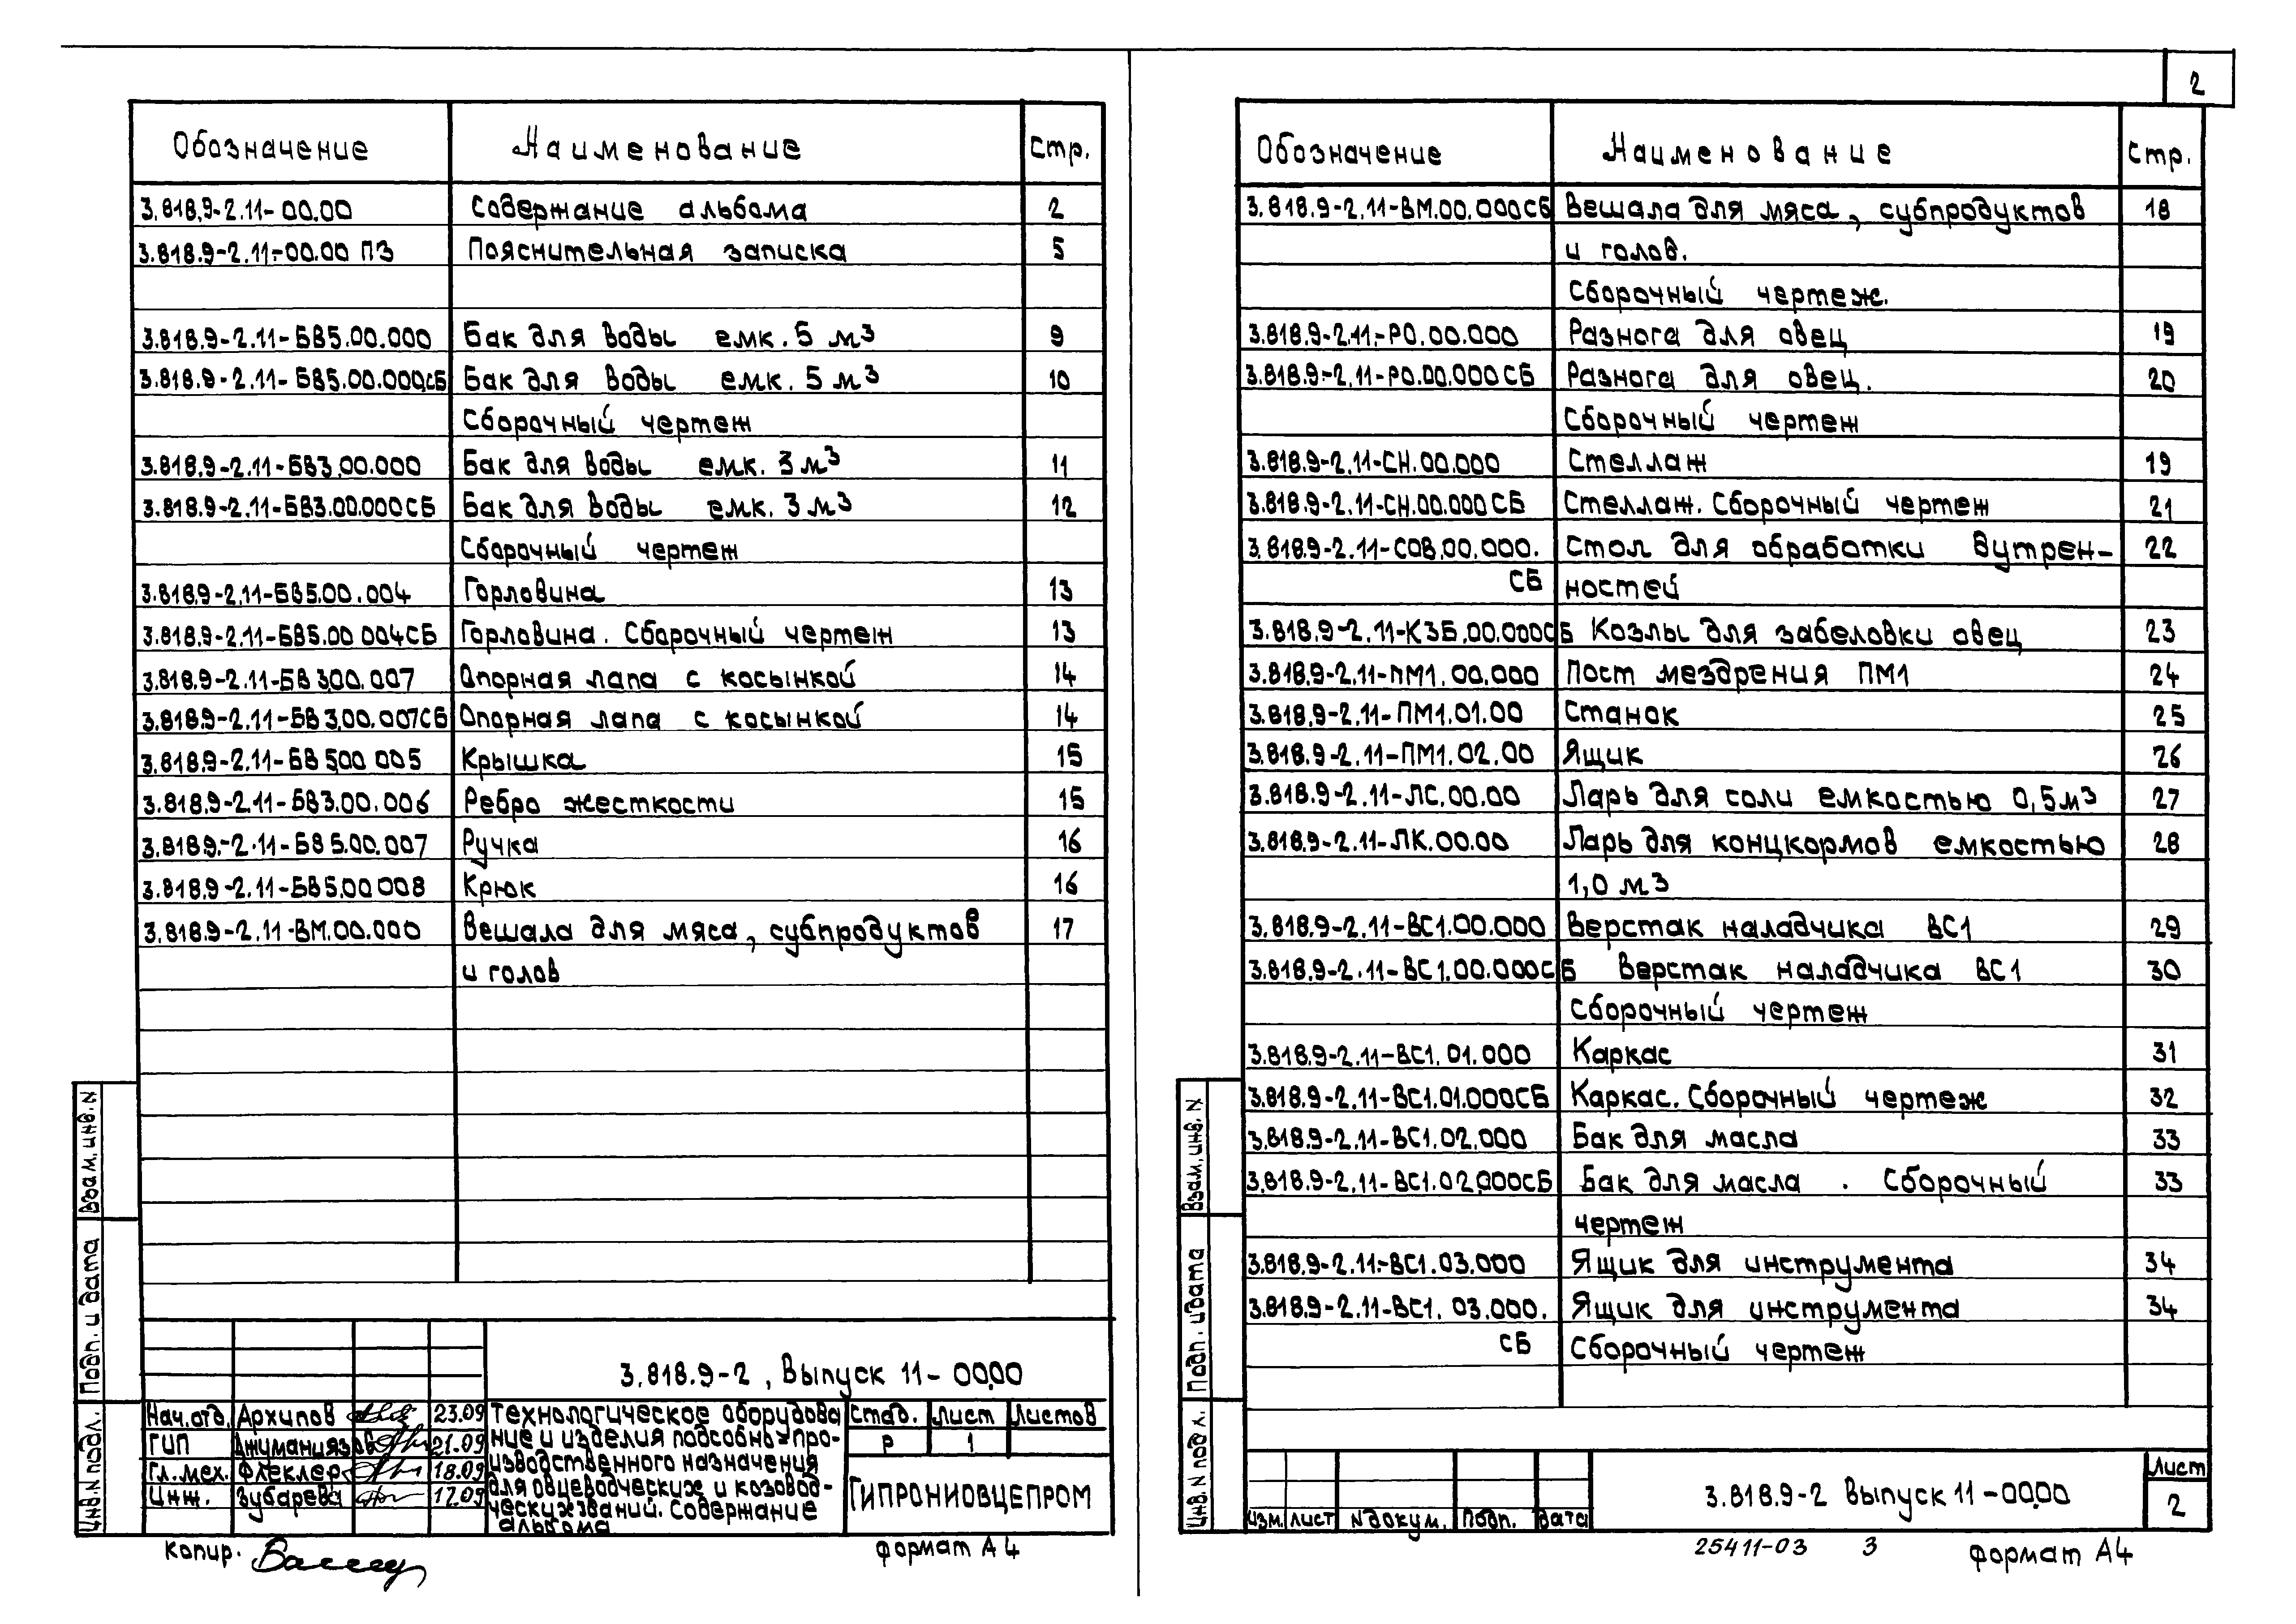 2
Обозначение Наименование Стр.
3.818.9-2.11-00.00 Содержание альбома 2
3.818.9-2.11-00.00 ПЗ Пояснительная записка 5
3.818.9-2.11-БВ5.00.000 Бак для воды емк. 5 м3 9
3.818.9-2.11-БВ5.00.000СБ Бак для воды емк. 5 м3 10
Сборочный чертеж
3.818.9-2.11-БВ3.00.000 Бак для воды емк. 3 м3 11
3.818.9-2.11-БВ3.00.000СБ Бак для воды емк. 3 м3 12
Сборочный чертеж
3.818.9-2.11-БВ5.00.004 Горловина 13
3.818.9-2.11-БВ5.00 004СБ Горловина. Сборочный чертеж 13
3.818.9-2.11-БВ 3.00.007 Опорная лапа с косынкой 14
3.818.9-2.11-БВ 3.00.007СБ Опорная лапа с косынкой 14
3.818.9-2.11-БВ 5.00 005 Крышка 15
3.818.9-2.11-БВ3.00.006 Ребро жесткости 15
3.818.9-2.11-БВ 5.00.007 Ручка 16
3.818.9-2.11-БВ5.00 008 Крюк 16
3.818.9-2.11-ВМ.00.000 Вешала для мяса, субпродуктов 17
и голов
Взам. инв. N
Подп. и дата
Инв. N подл.
3.818.9-2, Выпуск 11-00.00
Нач.отд. Архипов 23.09
ГИП Джуманиязов 21.09
Гл.мех. Флеклер 18.09
Инж. Зубарева 17.09
Технологическое оборудова
ние и изделия подсобно-про-
изводственного назначения
для овцеводческих и козовод-
ческих зданий. Содержание
альбома
Стад. Лист Листов
Р 1
ГИПРОНИОВЦЕПРОМ
Копир.
формат А4
Обозначение Наименование Стр.
3.818.9-2.11-ВМ.00.000СБ Вешала для мяса, субпродуктов 18
и голов.
Сборочный чертеж.
3.818.9-2.11-РО.00.000 Разнога для овец 19
3.818.9-2.11-РО.00.000СБ Разнога для овец. 20
Сборочный чертеж
3.818.9-2.11-СН.00.000 Стеллаж 19
3.818.9-2.11-СН.00.000СБ Стеллаж. Сборочный чертеж 21
3.818.9-2.11-СОВ.00.000. Стол для обработки вутрен- 22
СБ ностей
3.818.9-2.11-КЗБ.00.000СБ Козлы для забеловки овец 23
3.818.9-2.11-ПМ1.00.000 Пост мездрения ПМ1 24
3.818.9-2.11-ПМ1.01.00 Станок 25
3.818.9-2.11-ПМ1.02.00 Ящик 26
3.818.9-2.11-ЛС.00.00 Ларь для соли емкостью 0,5м3 27
3.818.9-2.11-ЛК.00.00 Ларь для концкормов емкостью 28
1,0 м3
3.818.9-2.11-ВС1.00.000 Верстак наладчика ВС1 29
3.818.9-2.11-ВС1.00.000СБ Верстак наладчика ВС1 30
Сборочный чертеж
3.818.9-2.11-ВС1.01.000 Каркас 31
3.818.9-2.11-ВС1.01.000СБ Каркас. Сборочный чертеж 32
3.818.9-2.11-ВС1.02.000 Бак для масла 33
3.818.9-2.11-ВС1.02.000СБ Бак для масла . Сборочный 33
чертеж
3.818.9-2.11-ВС1.03.000 Ящик для инструмента 34
3.818.9-2.11-ВС1.03.000. Ящик для инструмента 34
СБ Сборочный чертеж
Взам. инв. N
Подп. и дата
Инв. N подл.
Изм. Лист N докум. Подп. Дата
3.818.9-2 Выпуск 11-00.00
Лист
2
25411-03 3 формат А4